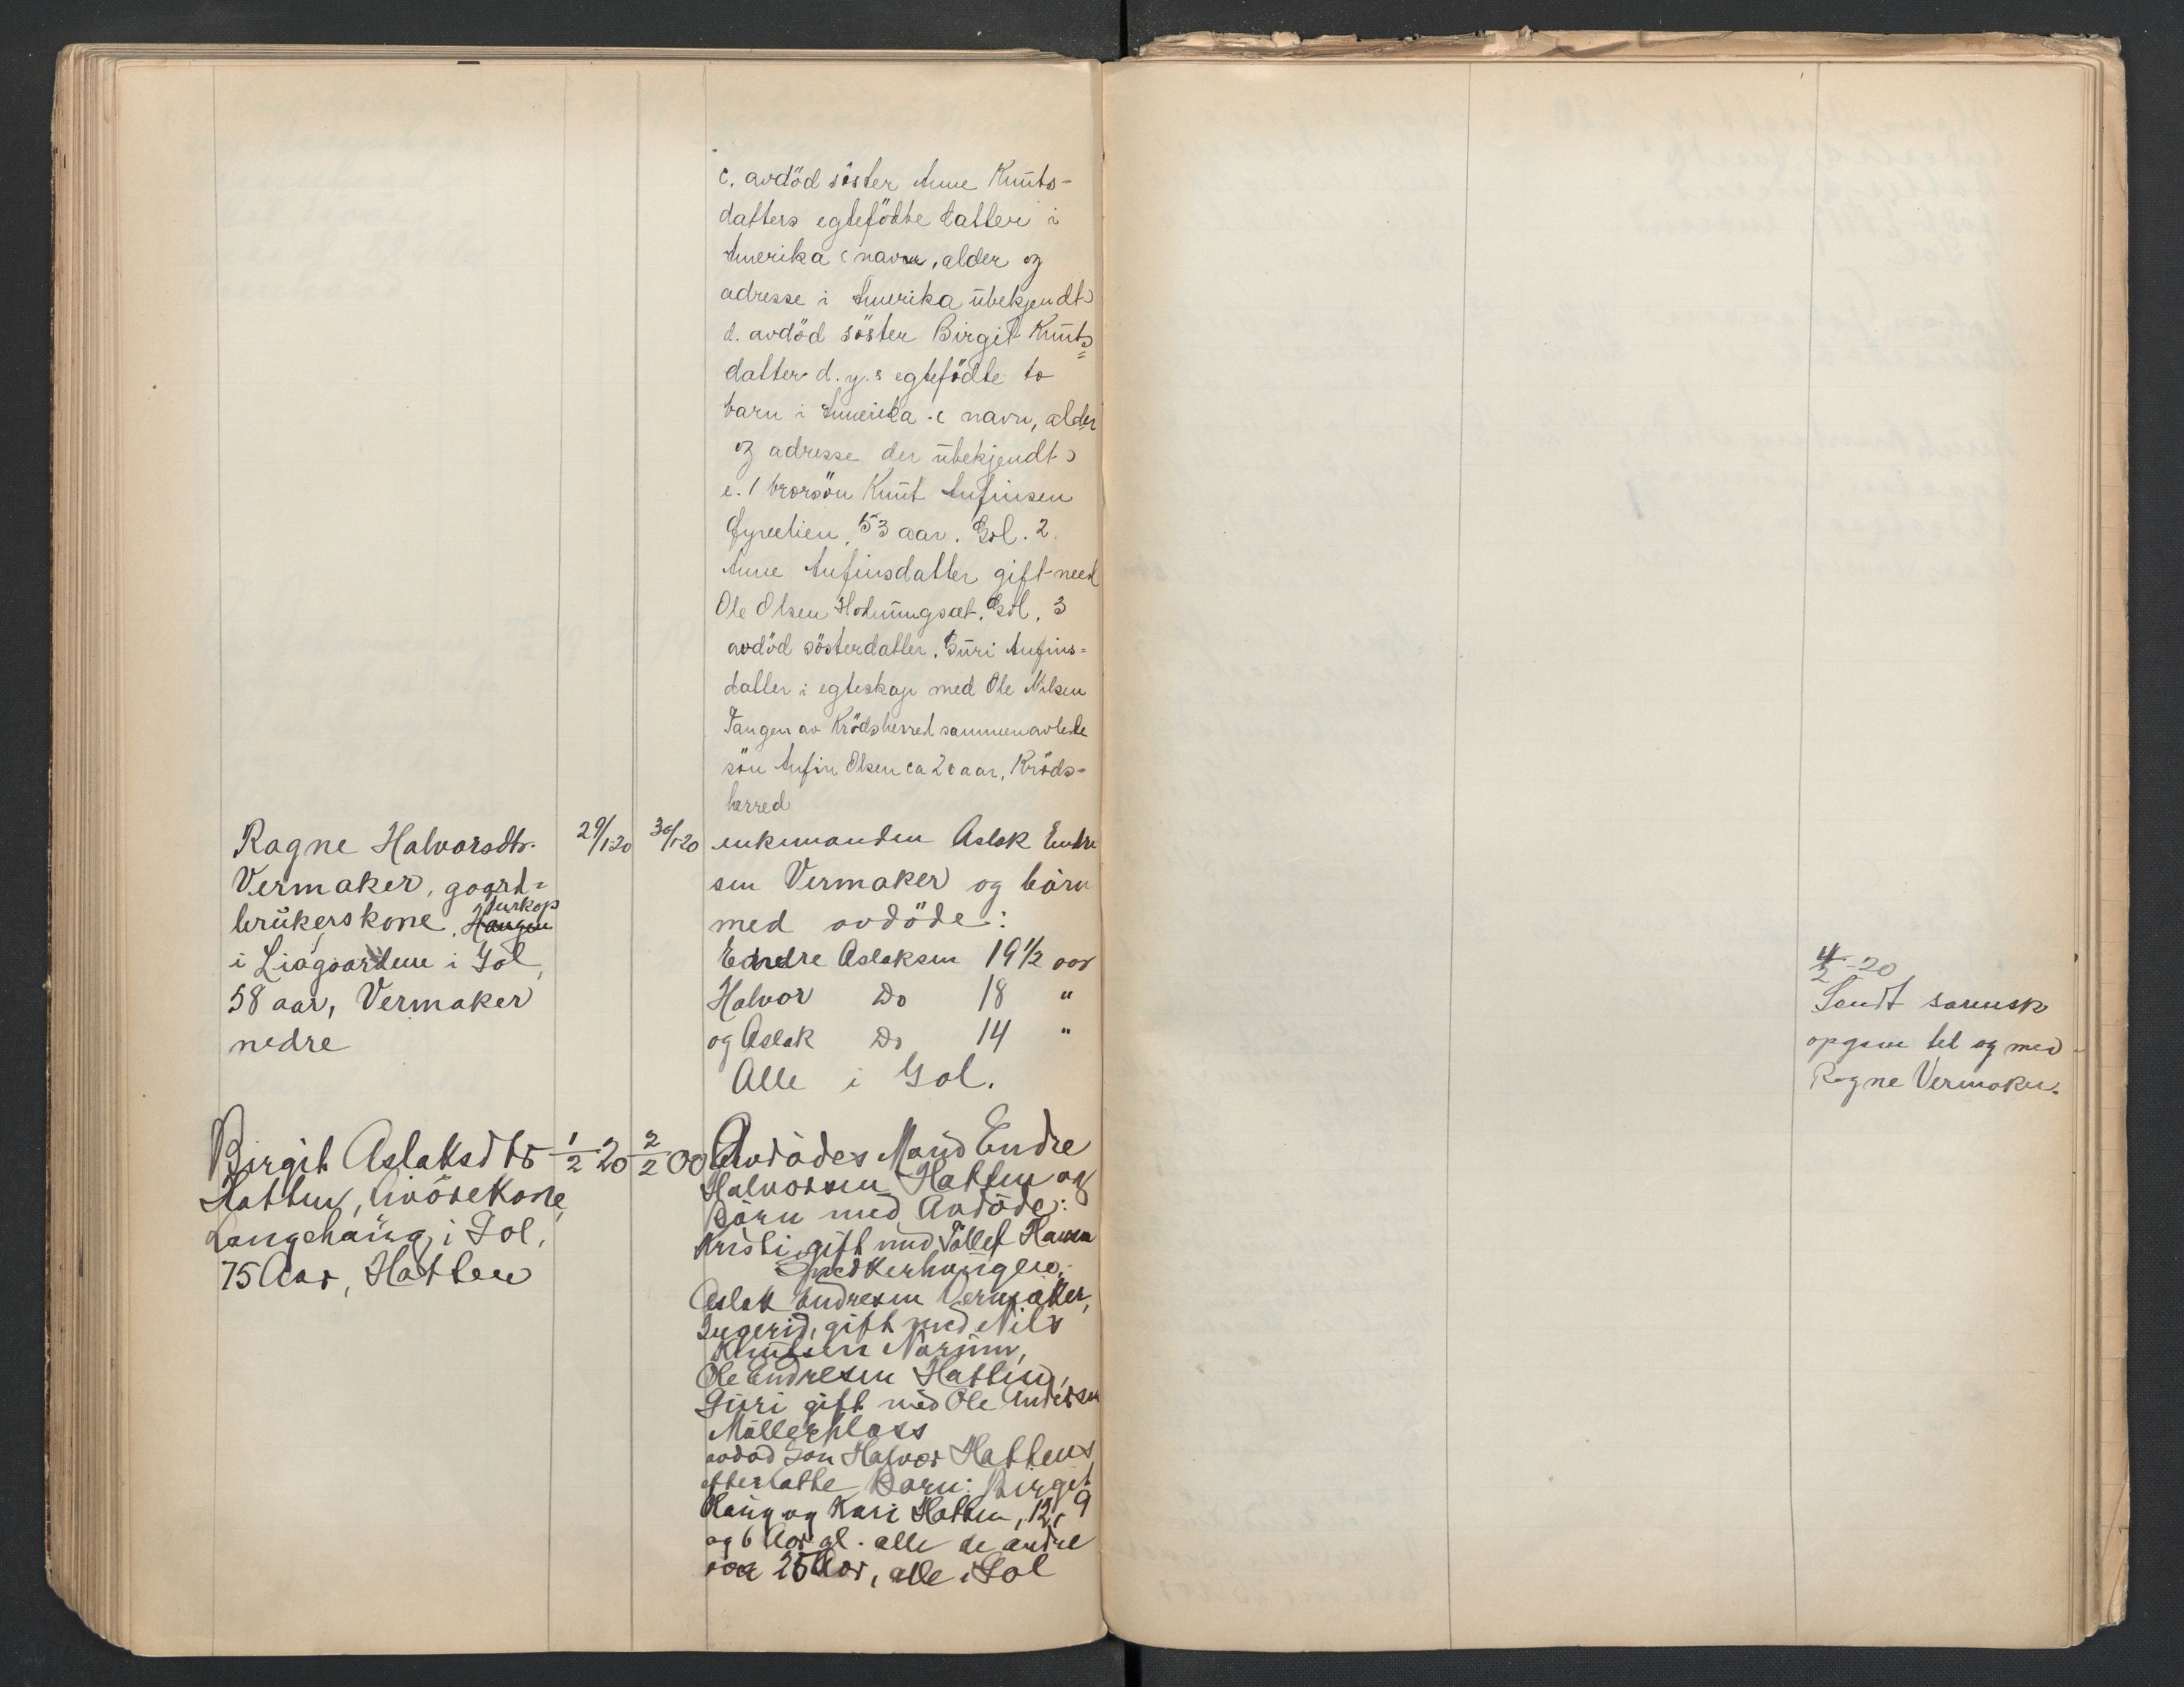 c. avdöd söster Anne Knuts-
datters egtefödte datter i
Amerika (navn, alder og
adresse i Amerika ubekjendt)
d. avdöd söster Birgit Knuts=
datter d.y.s egtefödte to
barn i Amerika (navn, alder
og adresse der ubekjendt)
e. 1 brorsön Knut Anfinsen
53 aar. Gol. 2.
Anne Anfinsdatter gift med
Ole Olsen Gol. 3
avdöd sösterdatter, Guri Anfins=
datter i egteskap med Ole Nilsen
Tangen av Krödsherred sammenavlede
sön Anfin Olsen ca 20 aar, Kröds=
herred
Ragne Halvorsdtr. 29/1 20 30/1 20 enkemanden Aslak Endre
Vermaker, gaard= sen Vermaker og börn
brukerskone, Haugen Turkop med avdöde:
i Liagaardene i Gol, Endre Aslaksen 19 1/2 aar
58 aar, Vermaker Halvor Do 18 "
nedre og Aslak Do 14 "
Alle i Gol.
4/2 -20
Sendt samısk
opgave til og med
Ragne Vermaker.
Birgit Aslaksdtr 1/2 20 2/2 00 Avdödes Mand Endre
Hatten, livörekone, Halvorsen Hatten og
Langehaug i Gol, Börn med Avdöde:
75 Aar, Hatten Kristi, gift med Tollef Hansen
Snedkerhaugen,
Aslak Endresen Vermaker,
Ingerid, gift med Nils
Knutsen Narum,
Ole Endresen Hatten,
Guri gift med Ole Andersen
Möllerplass
avdöd Sön Halvor Hattens
efterlatte Barn: Birgit
Haug og Kari Hatten, 12, 9
og 6 Aar gl. alle de andre
over 25 Aar, alle i Gol